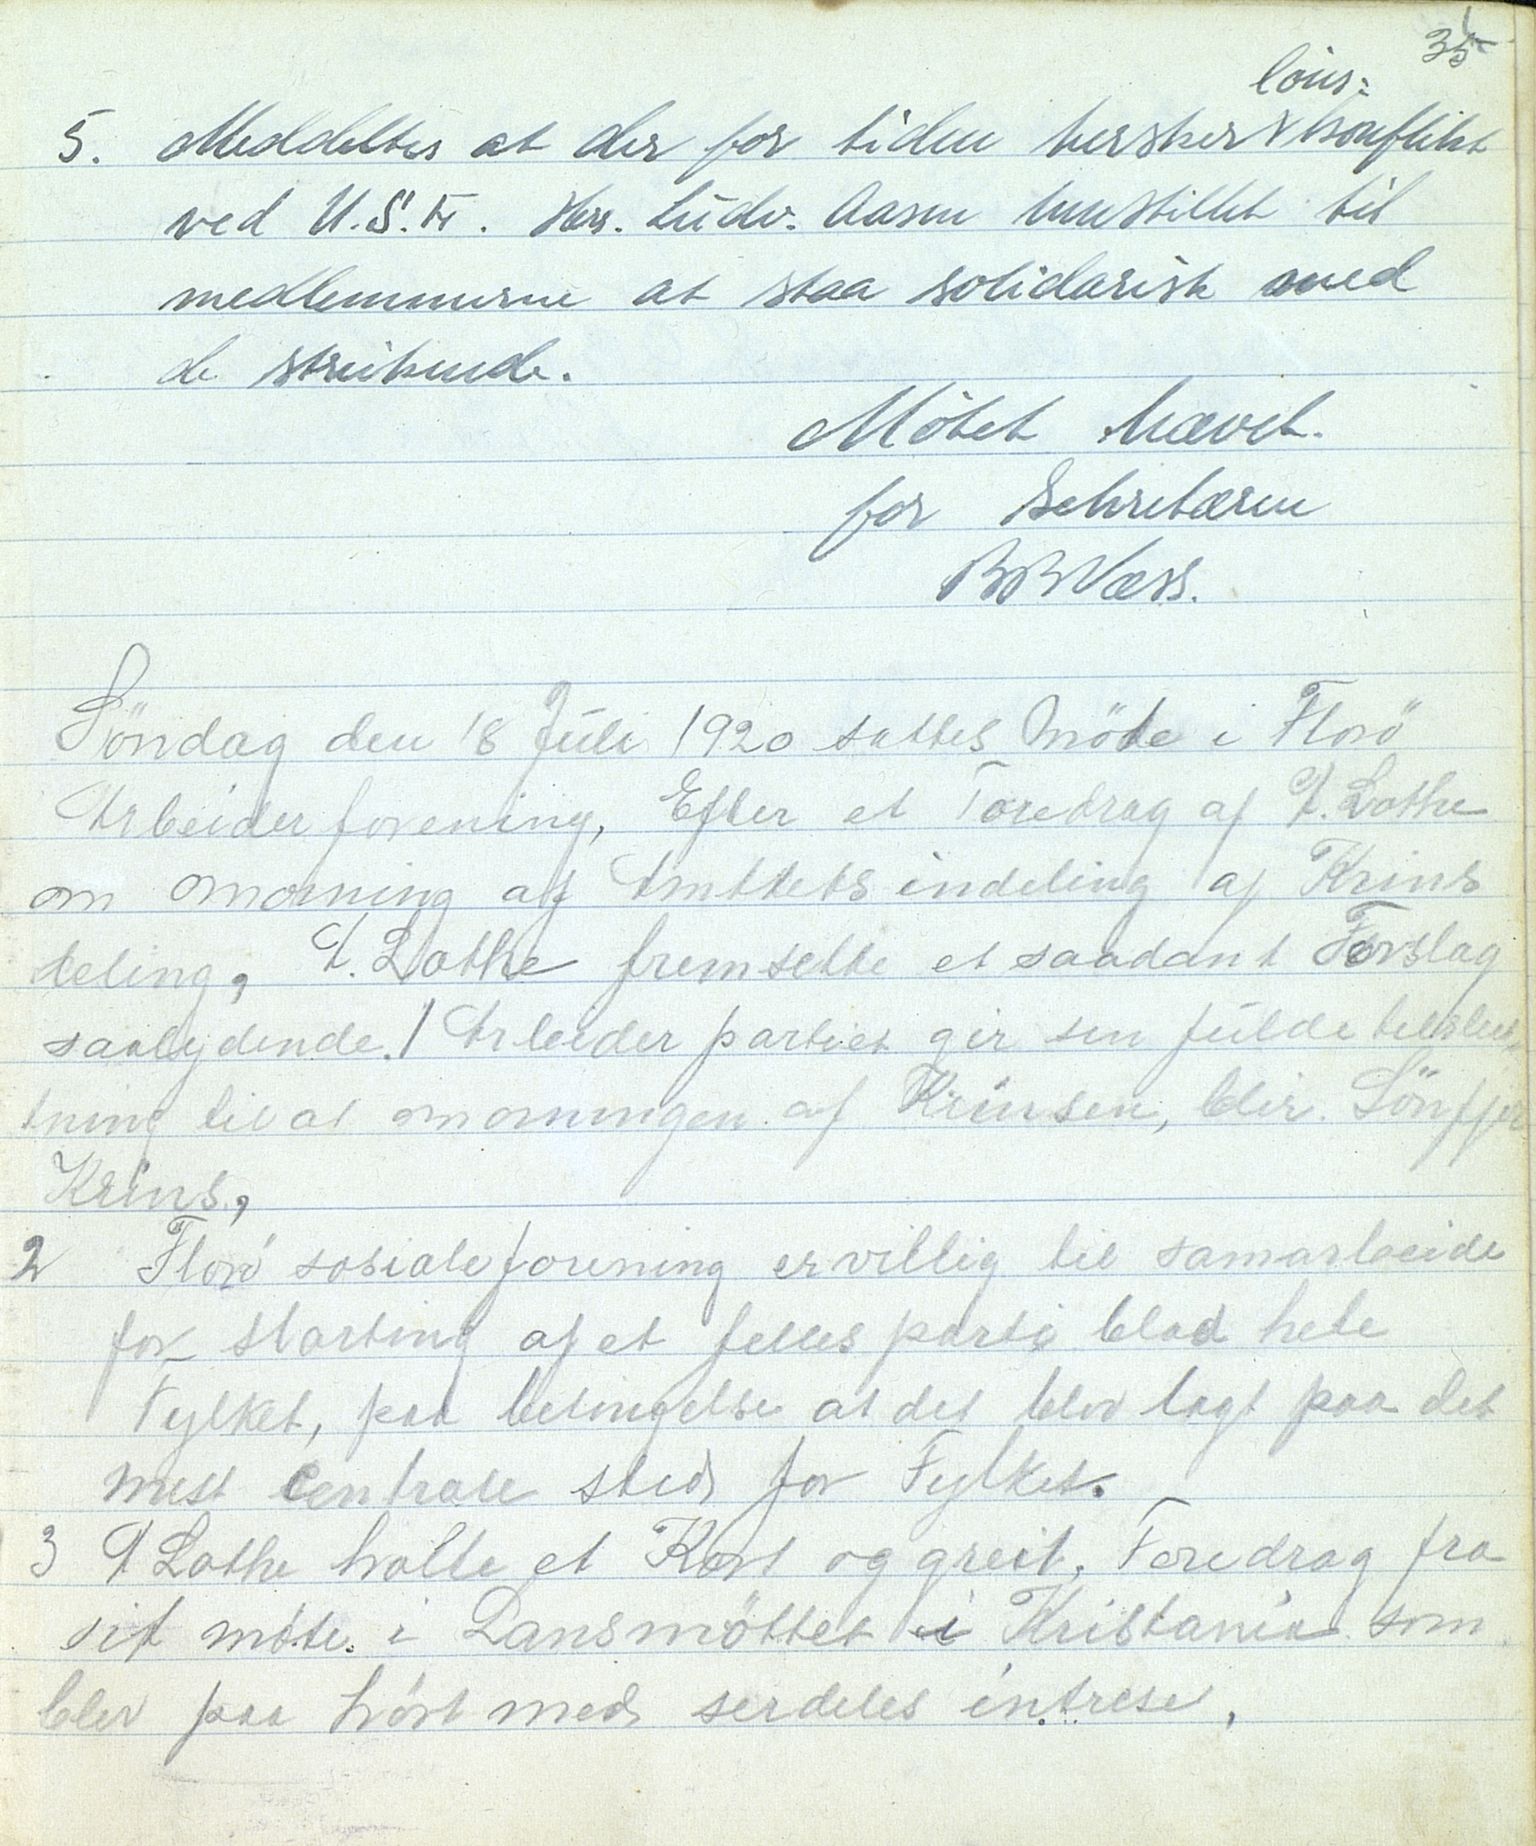 35
löns=
5. Meddeltes at der for tiden hersker konflikt
ved U.S.F. Hrr. Ludv. Aasen henstillet til
medlemmerne at staa solidarisk med
de streikende.
Mötet hævet.
for Sekretæren
BBNæss.
Söndag den 18 Juli 1920 sattes Möte i Florö
Arbeider forening, Efter et Foredrag af A. Lothe
om omorning af Amttets indeling af Krins
deling, A. Lothe fremsette et saadant Forslag
saalydende. 1 Arbeider partiet gir sin fulde tilslut-
tning til at omorningen af Krinsen, blir. Sönfjor
Krins,
2 Florö sosialeforening er villig til samarbeide
for starting af et felles parti blad hele
Fylket, paa betingelse at det blir lagt paa det
mest centrale sted for Fylket.
3 A Lothe holte et Kort og greit, Foredrag fra
sit möte i Lansmöttet i Kristania som
blev paa hört med serdeles intrese,